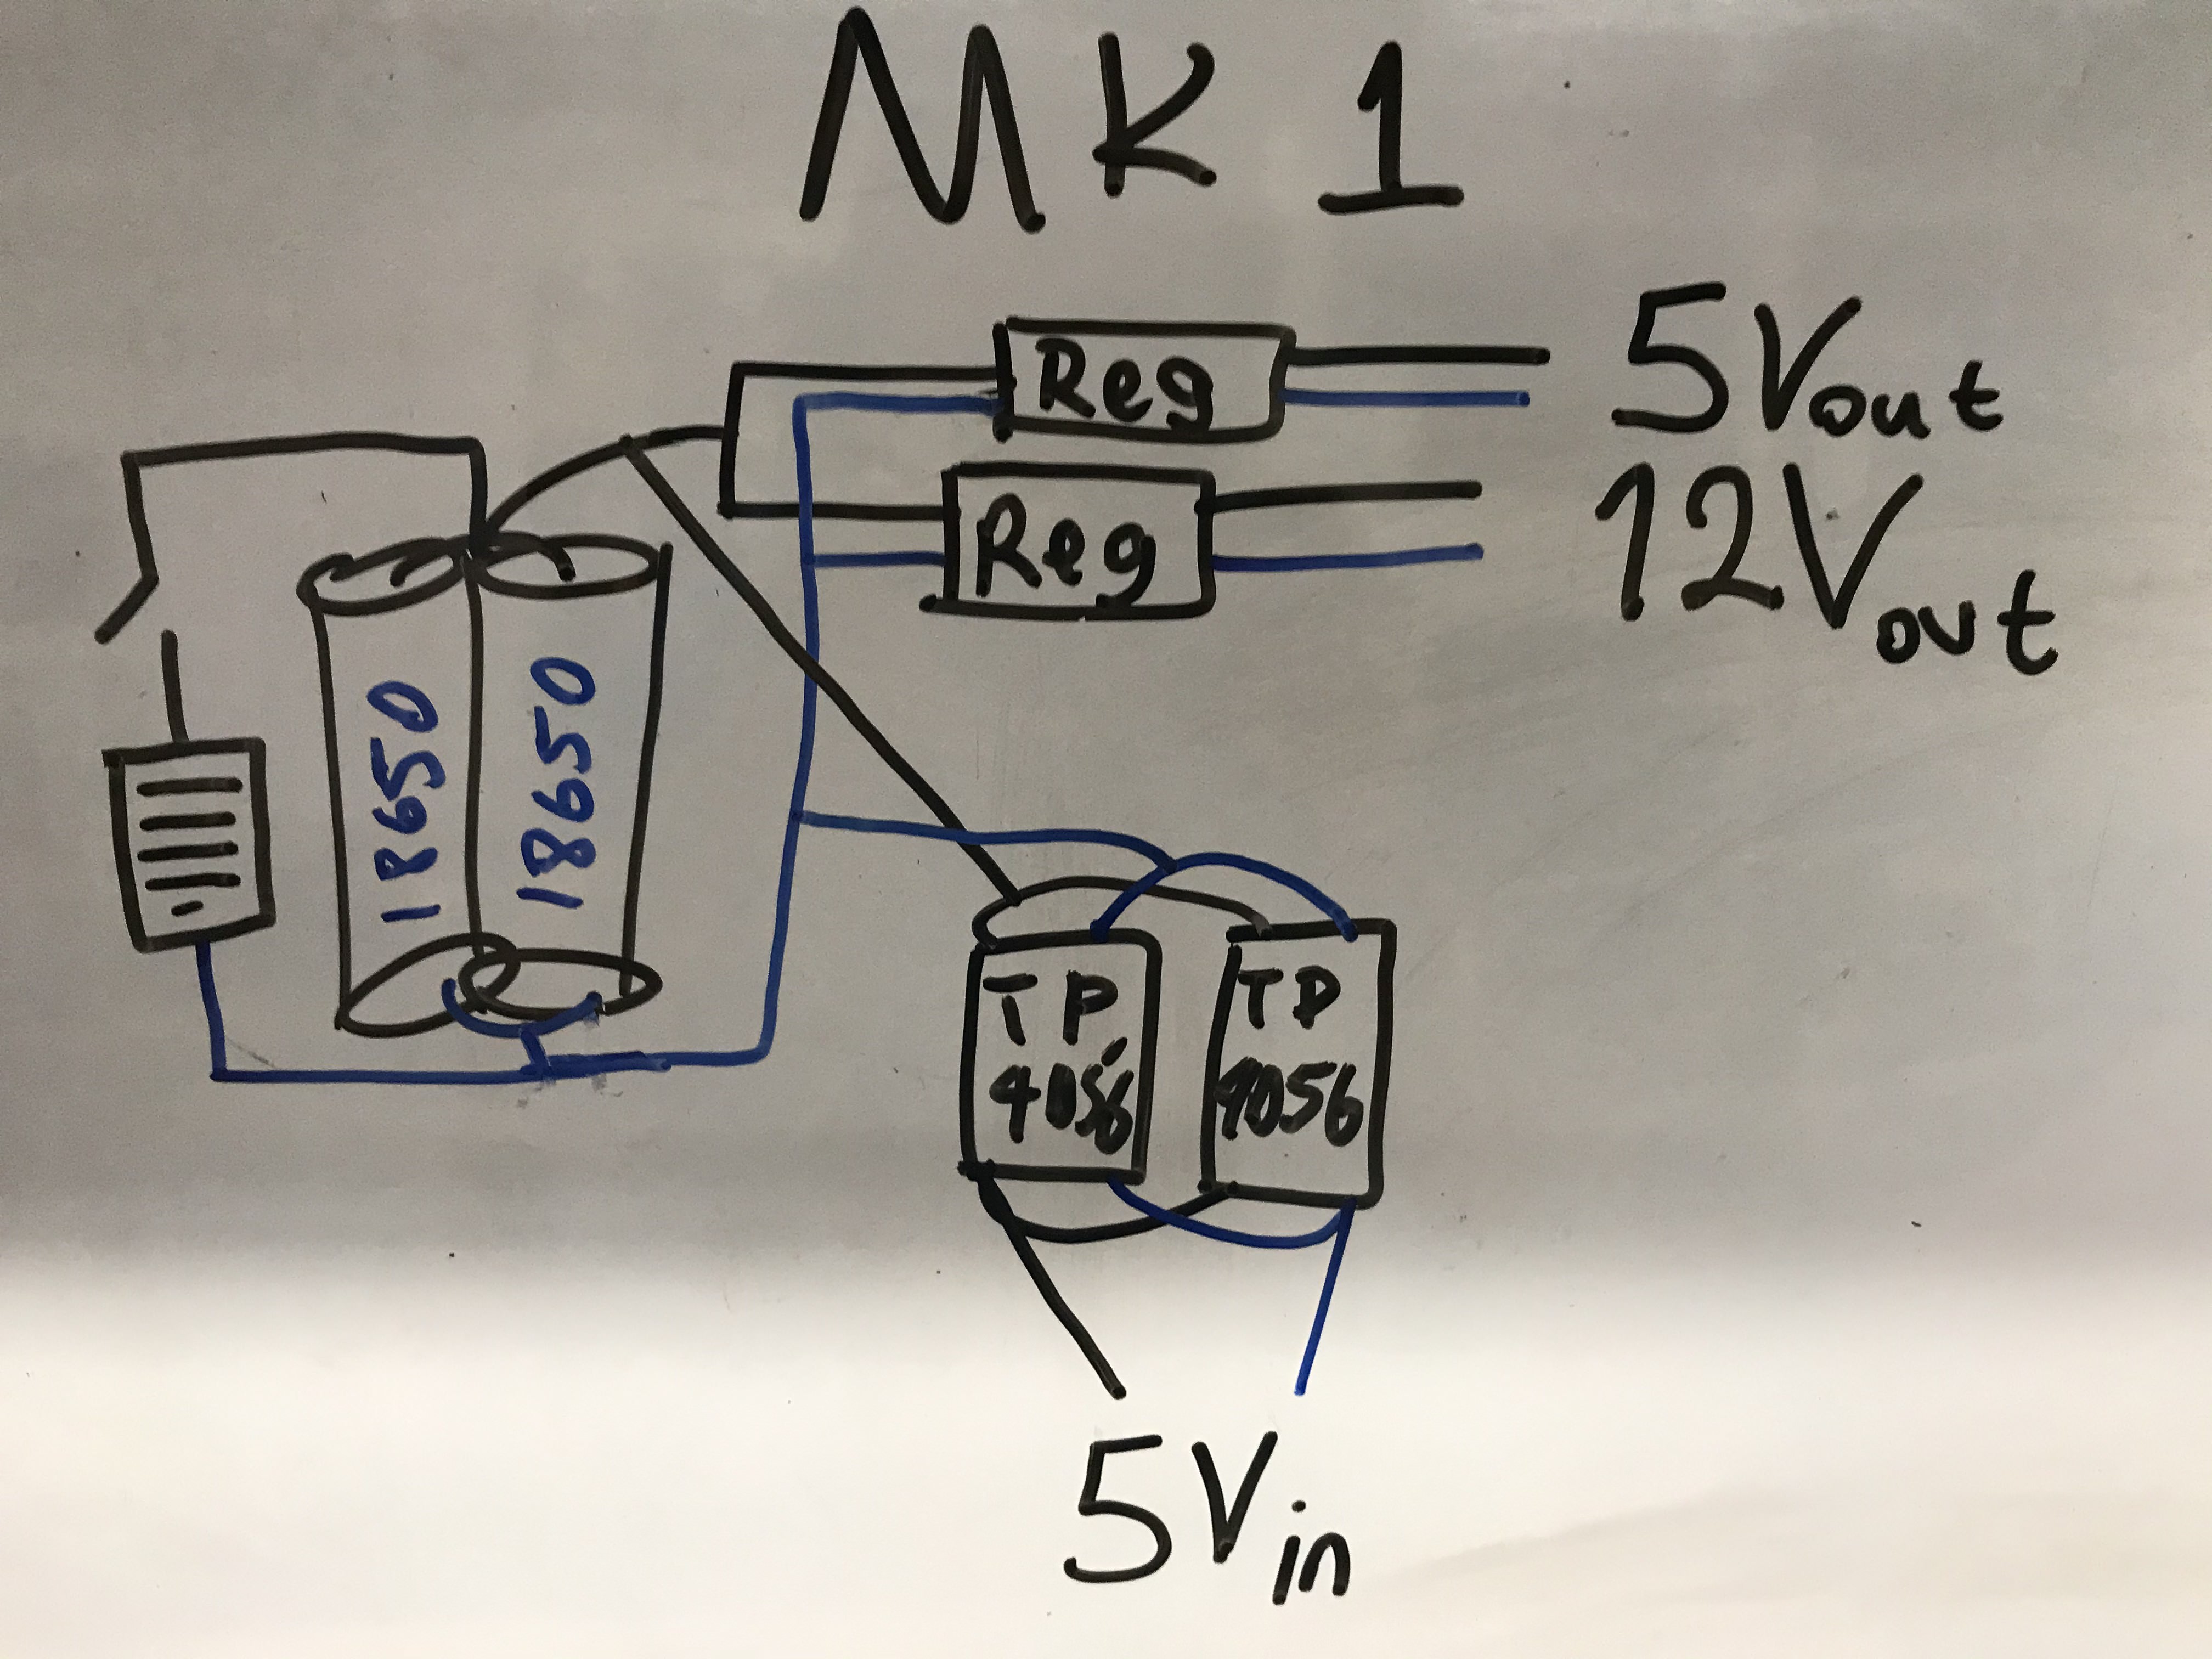 MK 1
Reg
5Vout
Reg
12Vout
18650
18650
TP
4056
TP
4056
5Vin